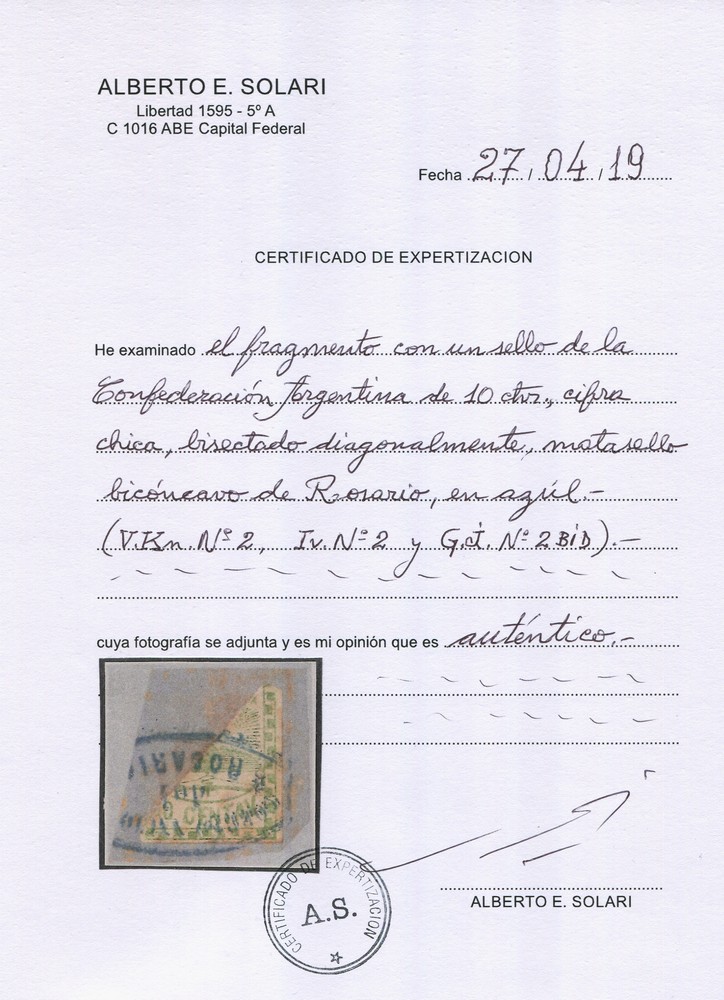 ALBERTO E. SOLARI
Libertad 1595 - 5º A
C 1016 ABE Capital Federal
Fecha 27 / 04 / 19
CERTIFICADO DE EXPERTIZACION
He examinado el fragmento con un sello de la
Confederación Argentina de 10 ctvs., cifra
chica, bisectado diagonalmente, matasello
bicóncavo de Rosario, en azúl.-
(V.Kn. Nº 2, Iv. Nº 2 y G.J. Nº 2 BID).-
cuya fotografía se adjunta y es mi opinión que es auténtico.-
ROSARI
CENTAV
CERTIFICADO DE EXPERTIZACION
A.S.
ALBERTO E. SOLARI